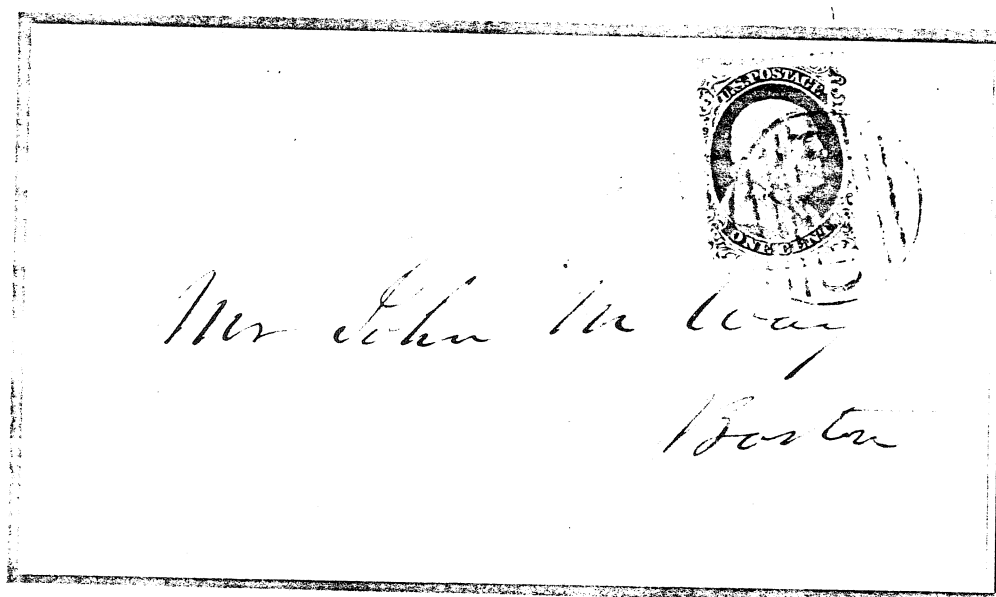 U.S. POSTAGE
ONE CENT
Mr John M Way
Boston